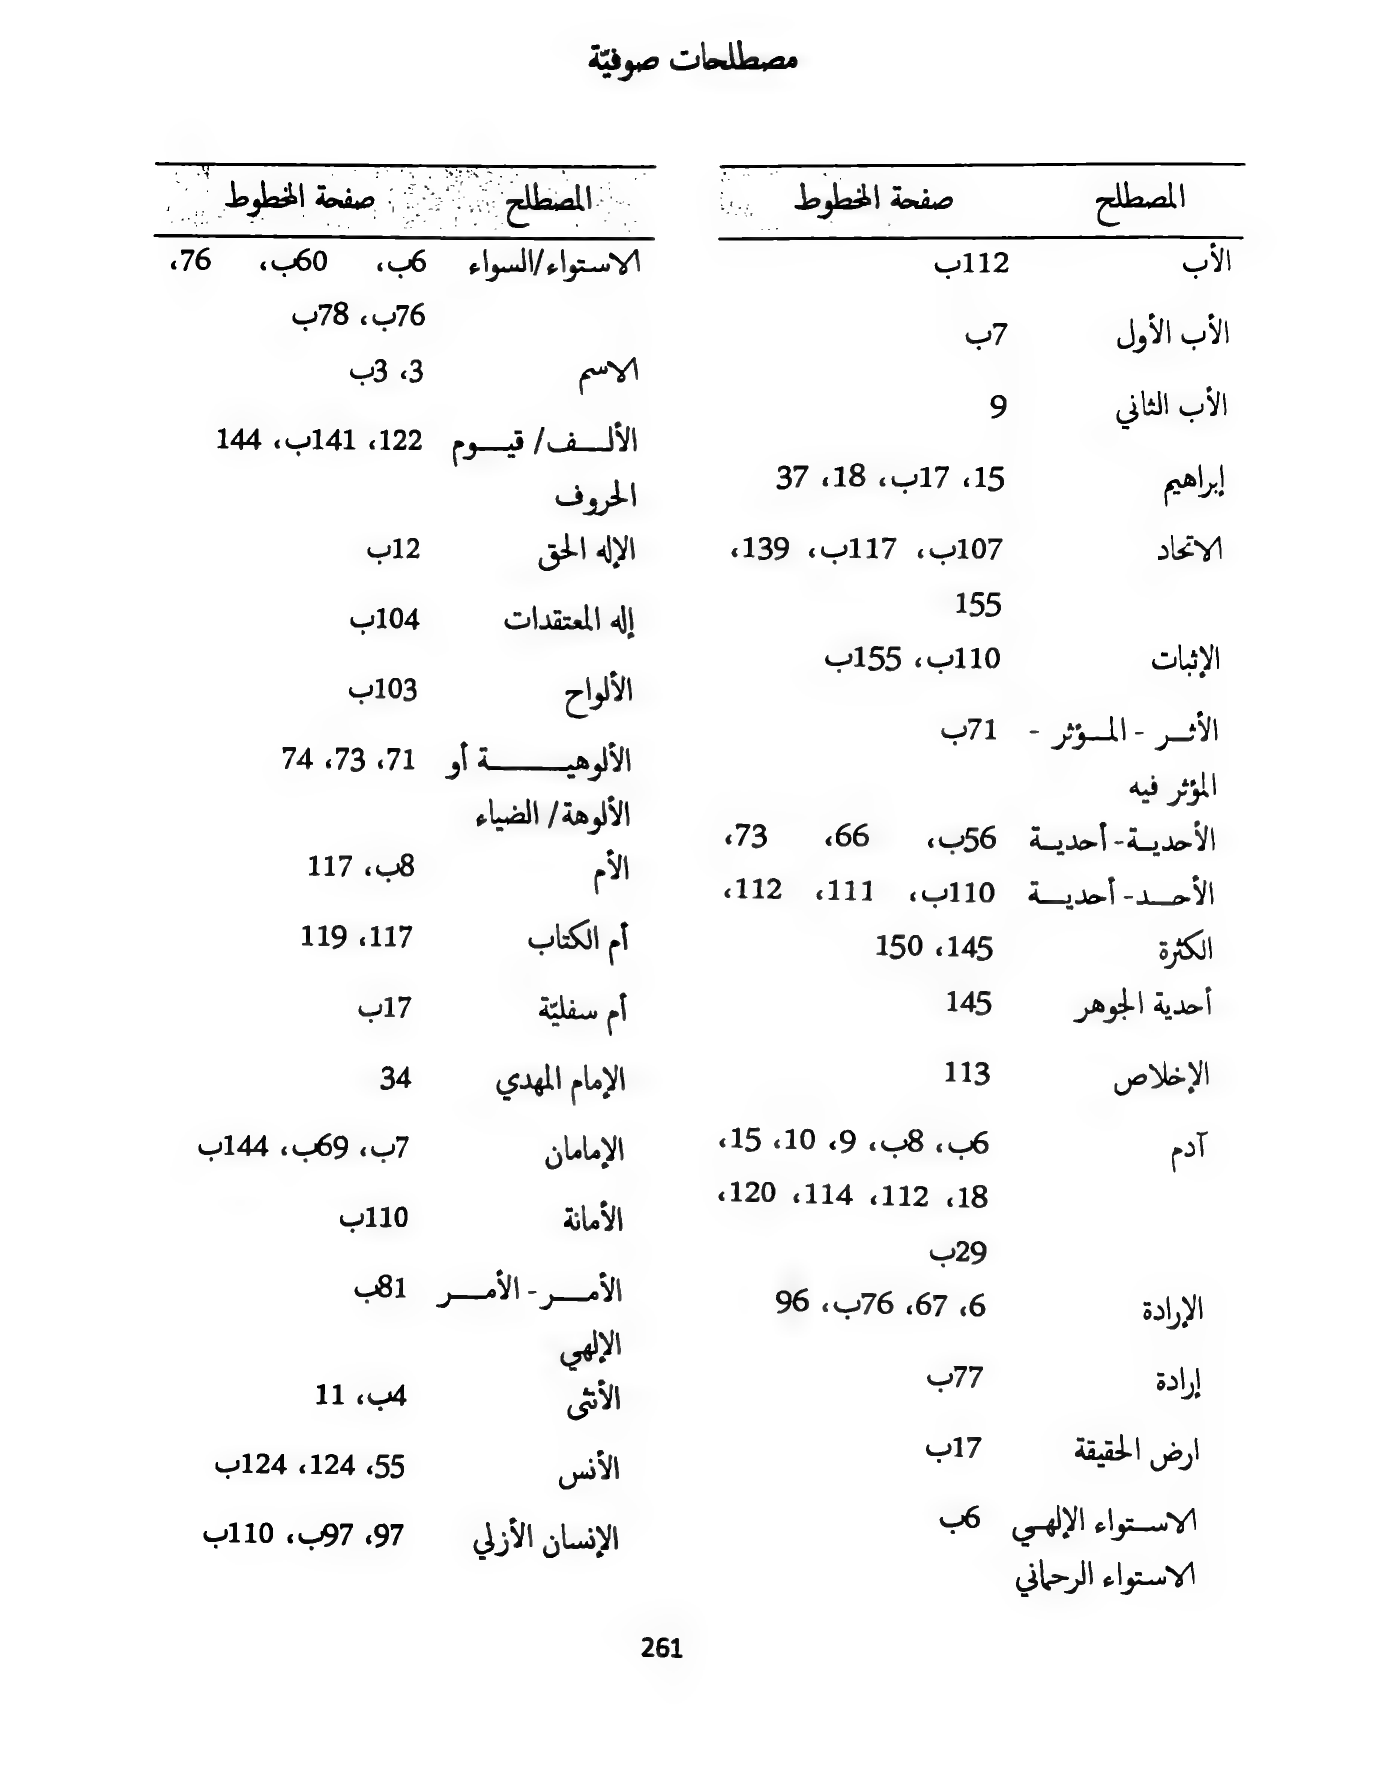 مصطلحات صوفيّة
المصطلح صفحة المخطوط
الأب 112ب
الأب الأول 7ب
الأب الثاني 9
إبراهيم 15، 17ب، 18، 37
الاتحاد 107ب، 117ب، 139،
155
الإثبات 110ب، 155ب
الأثـر - المـؤثر - 71ب
المؤثر فيه
الأحديـة- أحديـة 56ب، 66، 73،
الأحـد- أحديـة 110ب، 111، 112،
الكثرة 145، 150
أحدية الجوهر 145
الإخلاص 113
آدم 6ب، 8ب، 9، 10، 15،
18، 112، 114، 120،
29ب
الإرادة 6، 67، 76ب، 96
إرادة 77ب
ارض الحقيقة 17ب
الاسـتواء الإلهـي 6ب
الاستواء الرحماني
المصطلح صفحة المخطوط
الاستواء/السواء 6ب، 60ب، 76،
76ب، 78ب
الاسم 3، 3ب
الألـف/ قيـوم 122، 141ب، 144
الحروف
الإله الحق 12ب
إله المعتقدات 104ب
الألواح 103ب
الألوهيـة أو 71، 73، 74
الألوهة/ الضياء
الأم 8ب، 117
أم الكتاب 117، 119
أم سفليّة 17ب
الإمام المهدي 34
الإمامان 7ب، 69ب، 144ب
الأمانة 110ب
الأمـر- الأمـر 81ب
الإلهي
الأنثى 4ب، 11
الأنس 55، 124، 124ب
الإنسان الأزلي 97، 97ب، 110ب
261